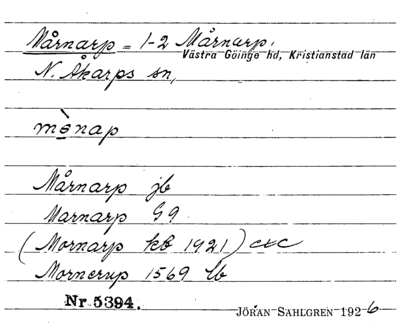 Mårnarp = 1-2 Mårnarp,
Västra Göinge hd, Kristianstad län
N. Åkarps sn,
mònap
Mårnarp jb
Marnarp G9
(Mornarp kb 1921) exc
Mornerup 1569 lb
Nr 5394.
JÖRAN SAHLGREN 1926